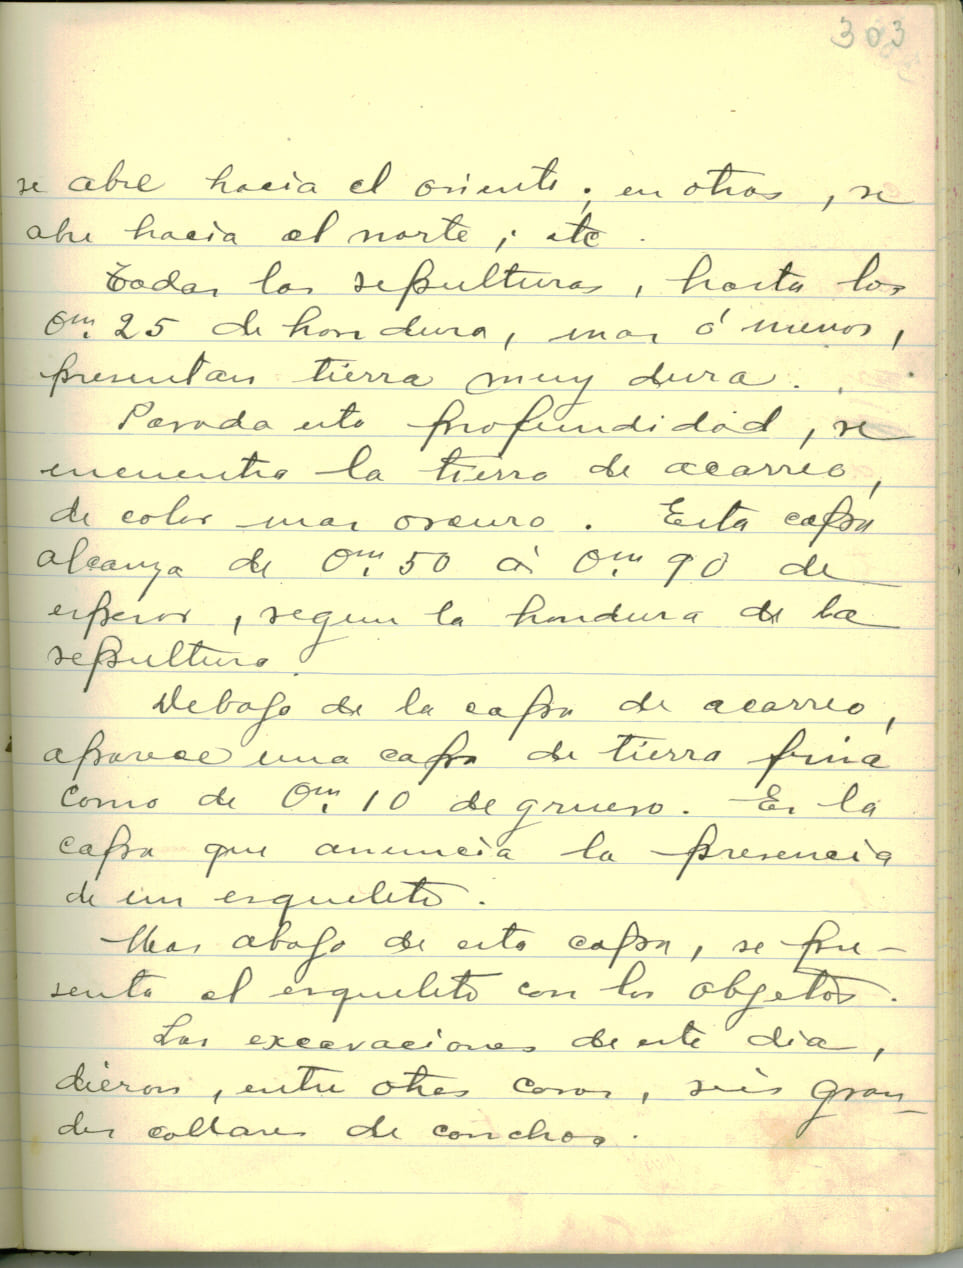 303
se abre hacia el oriente; en otras, se
abre hacia el norte; etc.
Todas las sepulturas, hasta los
0m. 25 de hondura, mas ó menos,
presentan tierra muy dura.
Pasada esta profundidad, se
encuentra la tierra de acarreo,
de color mas oscuro. Esta capa
alcanza de 0m. 50 á 0m. 90 de
espesor, segun la hondura de la
sepultura.
Debajo de la capa de acarreo,
aparece una capa de tierra fina
como de 0m. 10 de grueso. Es la
capa que anuncia la presencia
de un esqueleto.
Mas abajo de esta capa, se pre-
senta el esqueleto con los objetos.
Las excavaciones de este dia,
dieron, entre otras cosas, seis gran-
des collares de conchas.